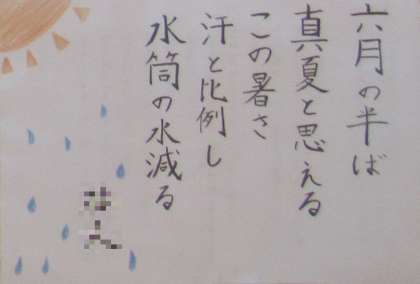 六月の半ば
真夏と思える
この暑さ
汗と比例し
水筒の水減る